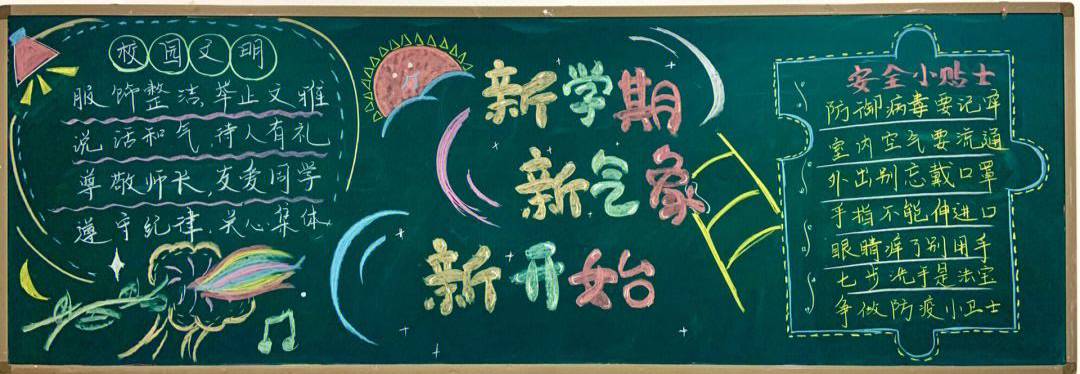 校园文明
服饰整洁,举止文雅
说话和气,待人有礼
尊敬师长,友爱同学
遵守纪律,关心集体
新学期
新气象
新开始
安全小贴士
防御病毒要记牢
室内空气要流通
外出别忘戴口罩
手指不能伸进口
眼睛痒了别用手
七步洗手是法宝
争做防疫小卫士